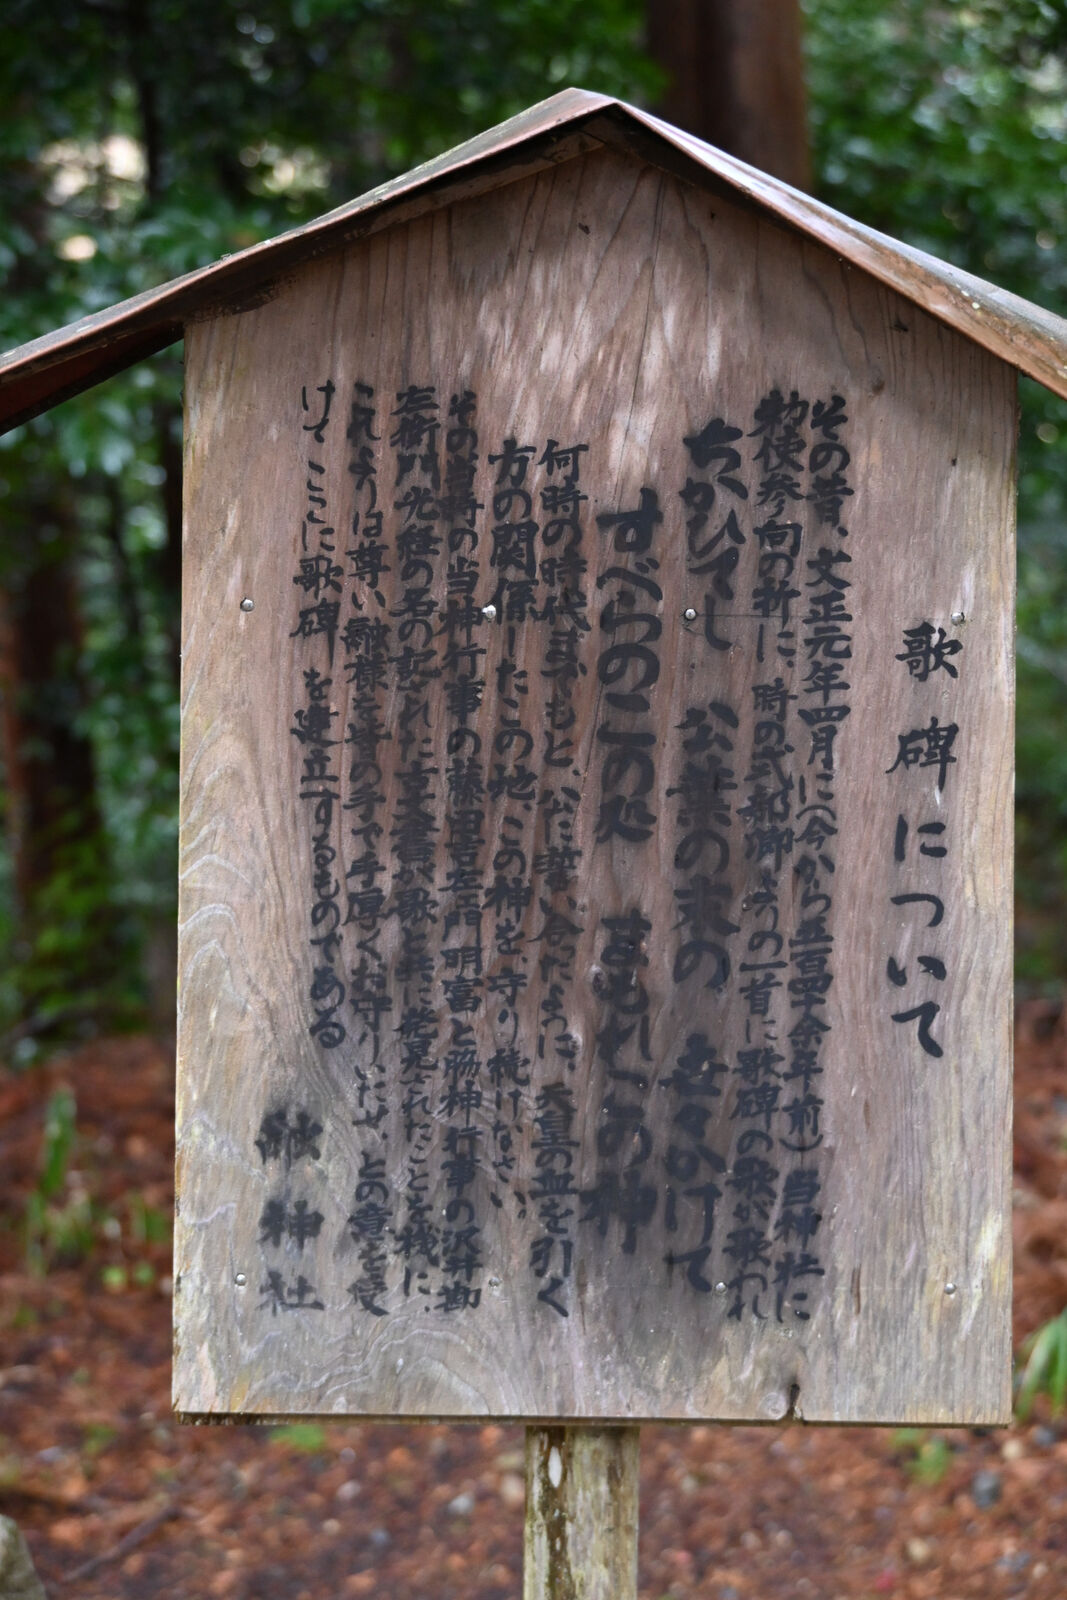 歌碑について
その昔、文正元年四月に(今から五百四十余年前)当神社に
勅使参向の折に、時の式部卿よりの一首に歌碑の歌が歌われ
ちかひてし 公葉の末の 世々かけて
すべらのこの処 まもれこの神
何時の時代までもと、公に誓い合たように、天皇の血を引く
方の関係したこの地、この神を、守り続けなさい。
その当時の当神行事の藤田吉左エ門明富と脇神行事の沢井勘
左衛門光経の名の記された古文書が歌と共に発見されたことを機に、
これよりは尊い融様を皆の手で手厚くお守りいたせ、との意を受
けてここに歌碑を建立するものである
融神社